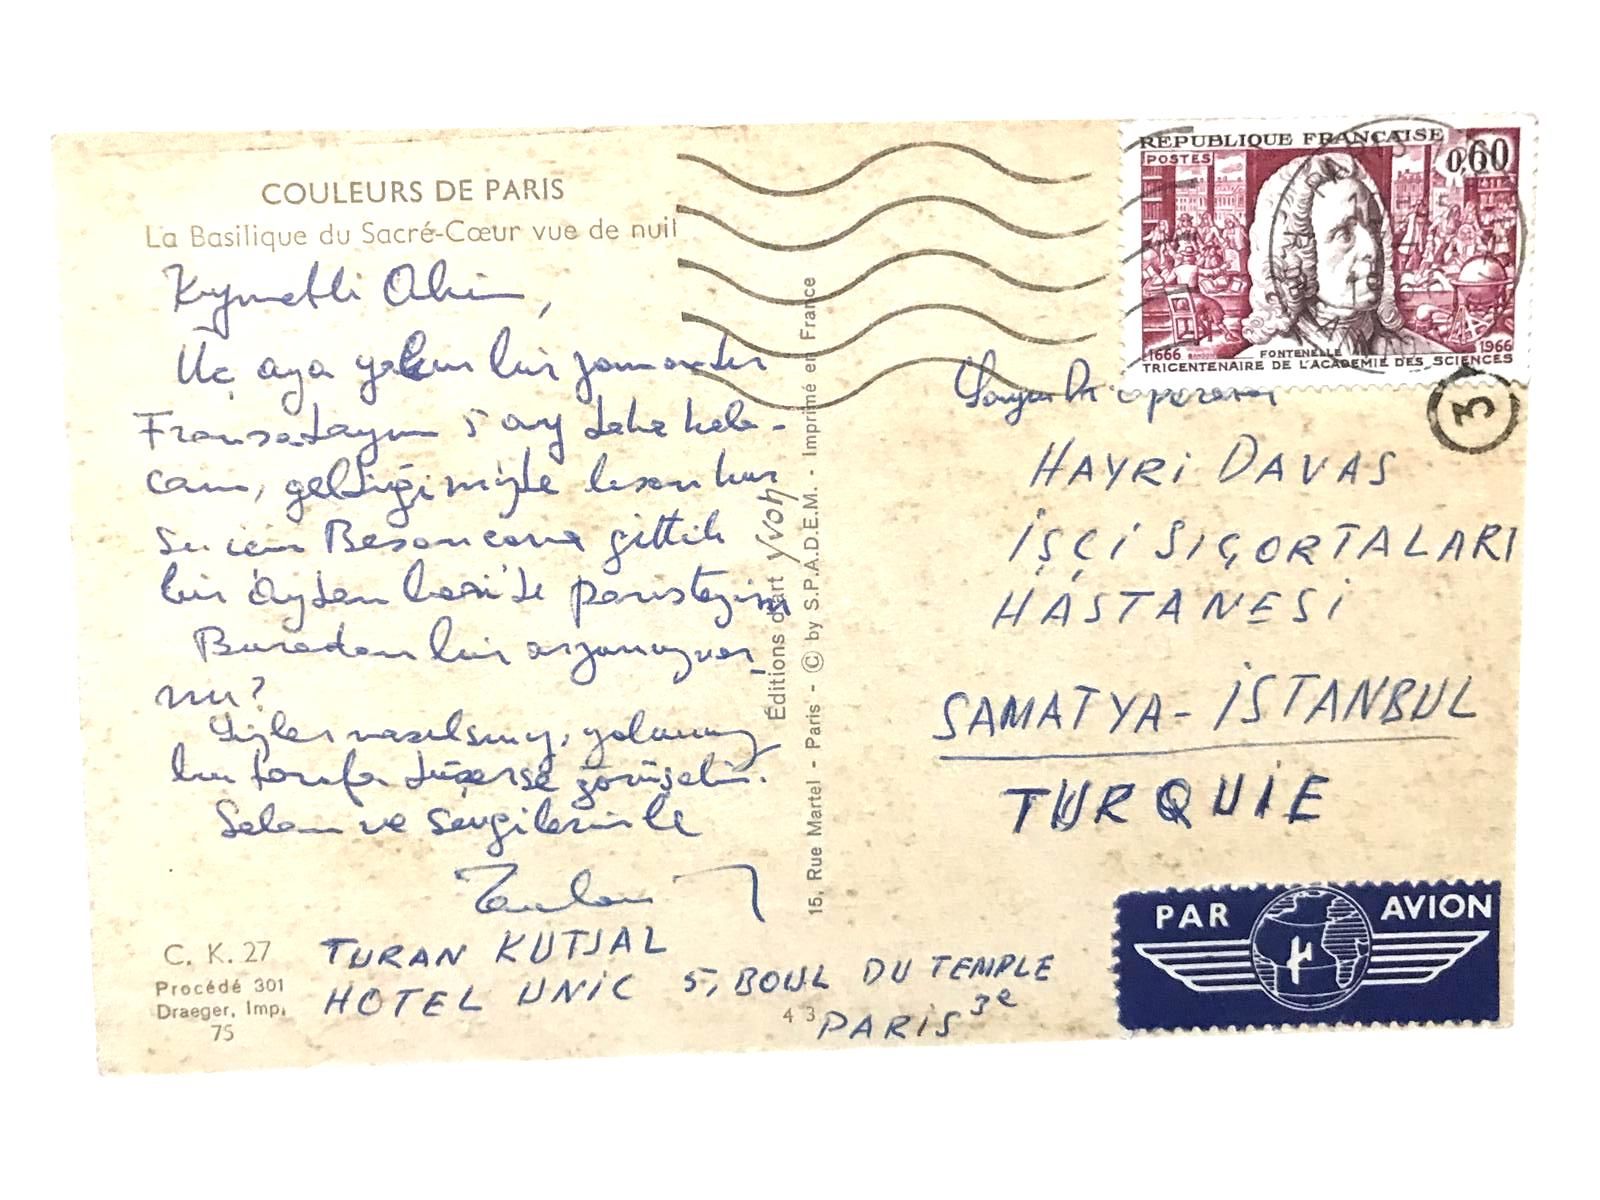 COULEURS DE PARIS
La Basilique du Sacré-Cœur vue de nuit
Kıymetli
Üç aya yakın bir zamandır
Fransadayım 5 ay daha kala-
cam, geldiğimizde lisan kur
su için Besancona gittik
bir aydan beri de paristeyim
Buradan bir arzunuz var
mı?
Sizler nasılsınız, yolunuz
bu tarafa düşerse görüşelim.
Selam ve sevgilerimle
Turan
TURAN KUTSAL
HOTEL UNIC 5, BOUL DU TEMPLE
PARIS 3e
C. K. 27
Procédé 301
Draeger, Imp.
75
43
Éditions d'art Yvon
15, Rue Martel - Paris - © by S.P.A.D.E.M. - Imprimé en France
REPUBLIQUE FRANÇAISE
POSTES
0,60
1666
FONTENELLE
1966
TRICENTENAIRE DE L'ACADEMIE DES SCIENCES
3
Sayın Dr
HAYRİ DAVAS
İŞÇİ SİGORTALARI
HASTANESİ
SAMATYA - İSTANBUL
TURQUIE
PAR AVION